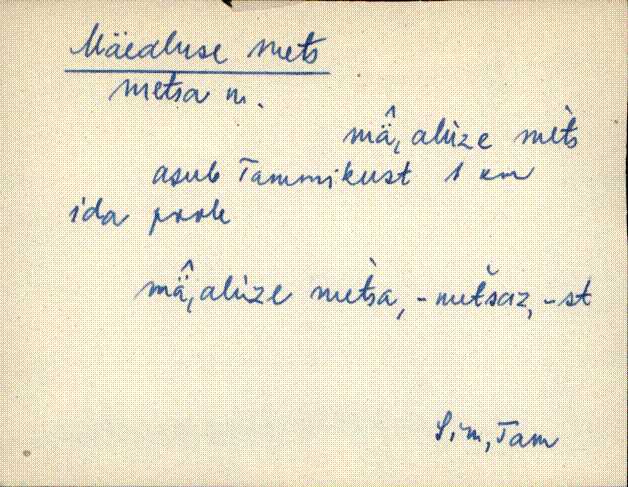 Mäealuse mets
metsa n.
mä̂, alùze mèt̀s
asub Tammikust 1 km
ida pool
mä̂, alùze mèt̀sa, -met̆saz, -st
Sim, Tam